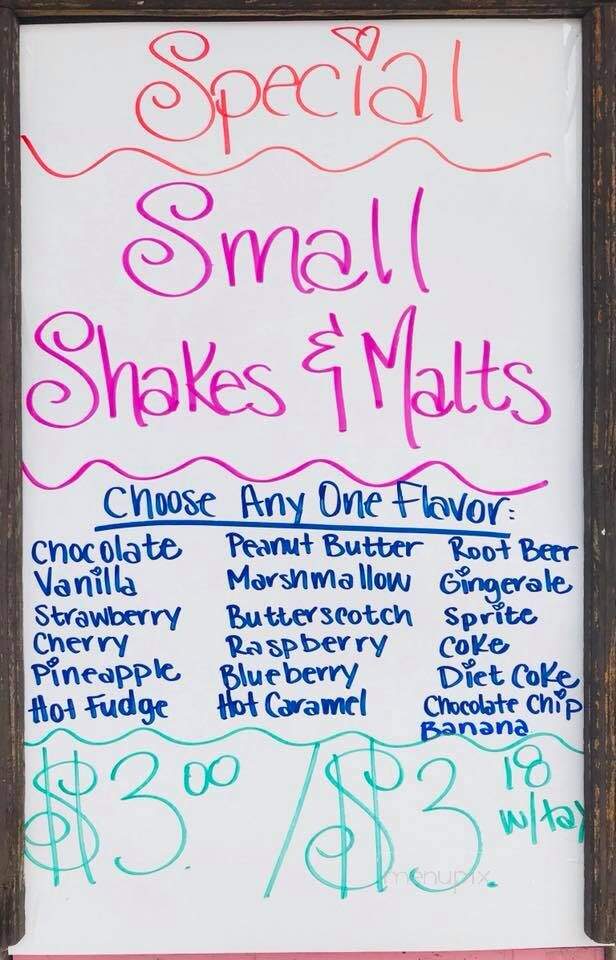 Special
Small
Shakes & Malts
Choose Any One Flavor:
Chocolate Peanut Butter Root Beer
Vanilla Marshmallow Gingerale
Strawberry Butterscotch Sprite
Cherry Raspberry Coke
Pineapple Blueberry Diet Coke
Hot Fudge Hot Caramel Chocolate Chip
Banana
$3.00 / $3.18
w/tax
menupix